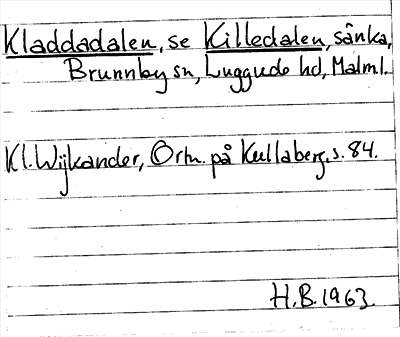 Kladdadalen, se Killedalen, sänka,
Brunnby sn, Luggude hd, Malml.
Kl. Wijkander, Ortn. på Kullaberg, s. 84.
H.B. 1963.